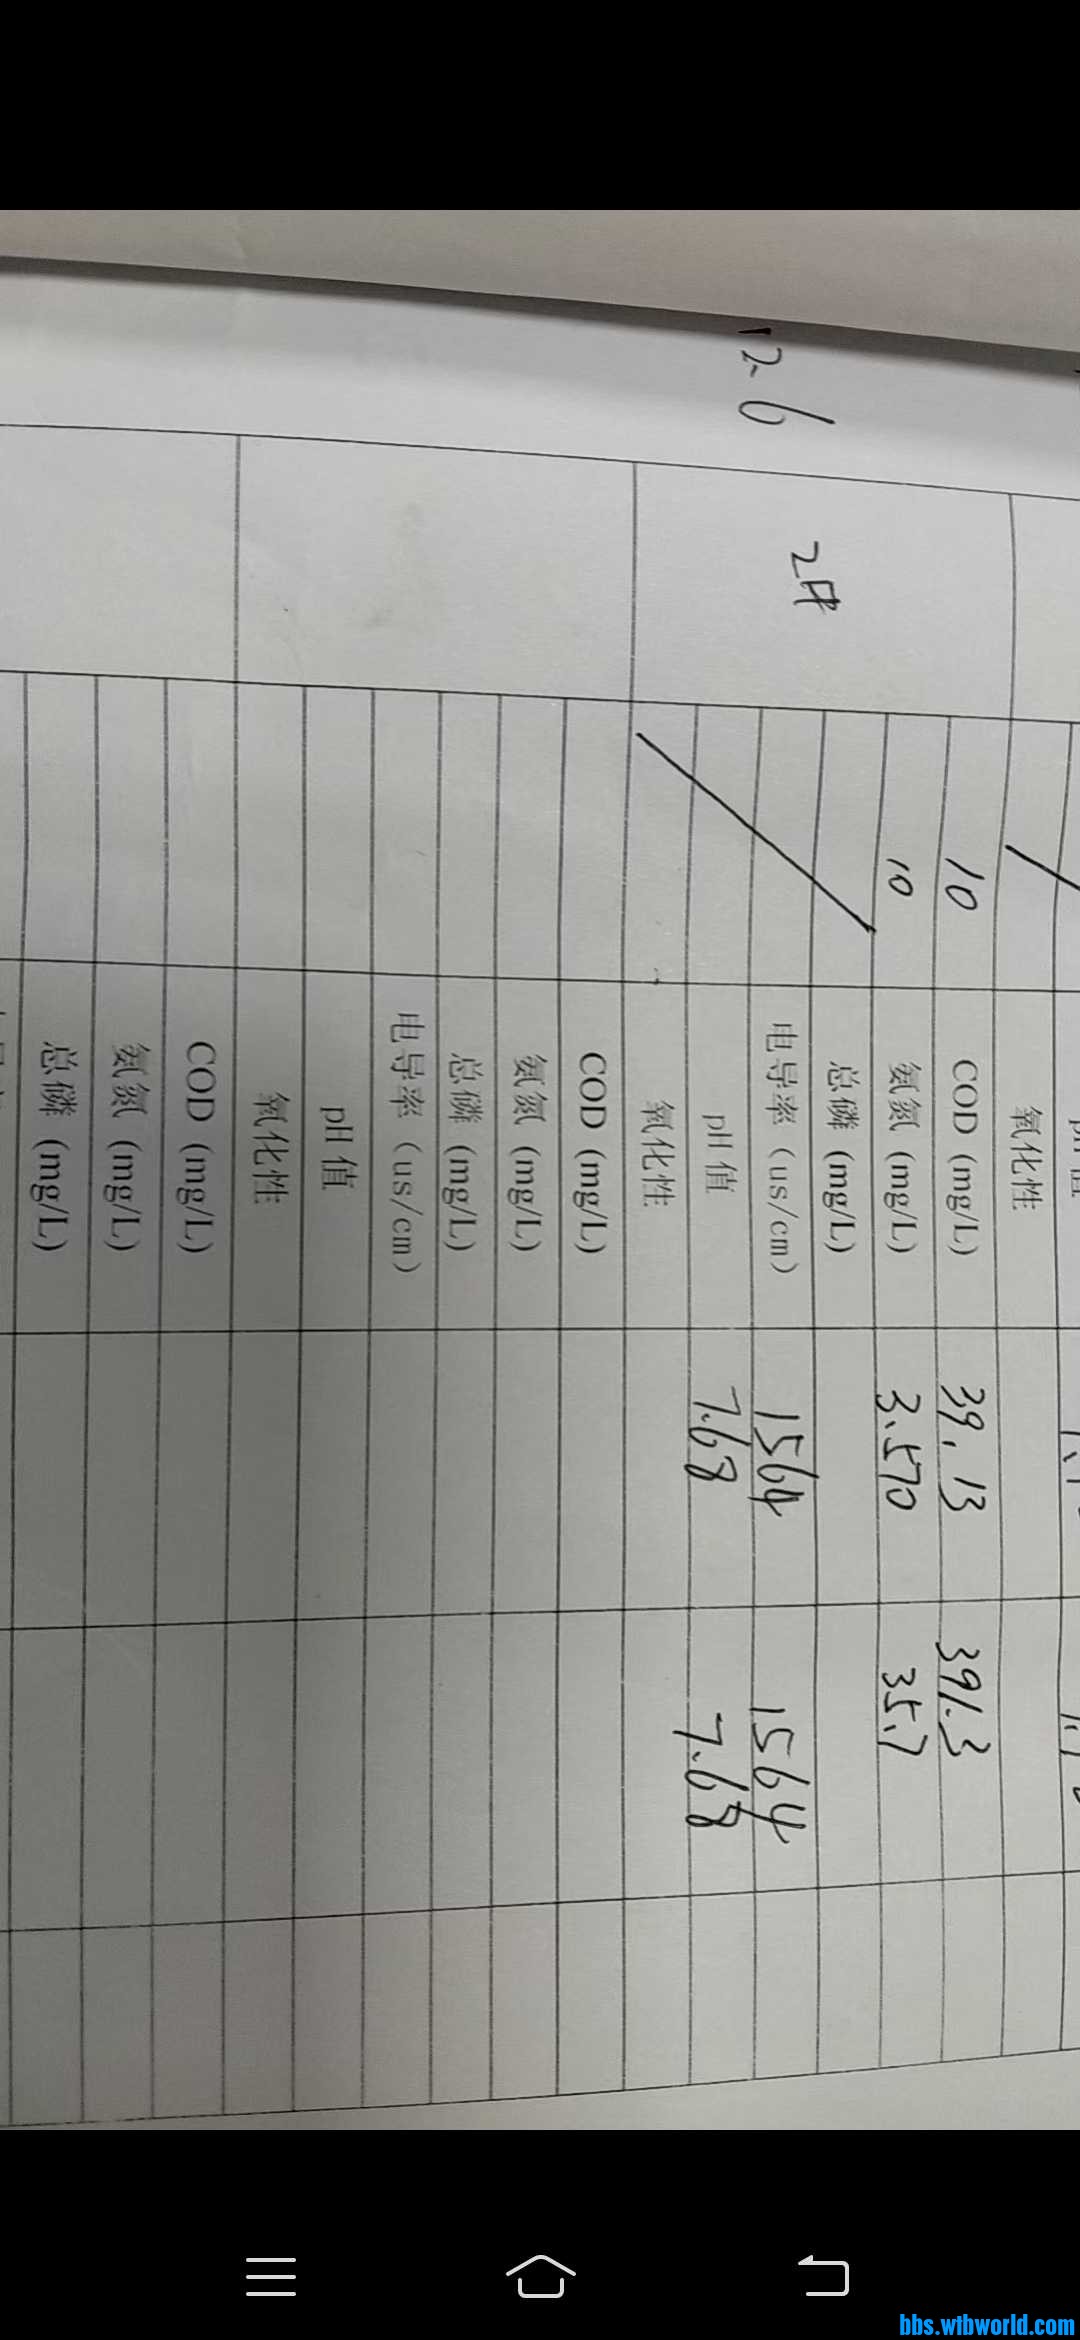 氧化性
12.6
2#
10 COD (mg/L) 39.13 391.3
10 氨氮 (mg/L) 3.570 35.7
总磷 (mg/L)
电导率 (us/cm) 1564 1564
pH 值 7.68 7.68
氧化性
COD (mg/L)
氨氮 (mg/L)
总磷 (mg/L)
电导率 (us/cm)
pH 值
氧化性
COD (mg/L)
氨氮 (mg/L)
总磷 (mg/L)
bbs.wtbworld.com